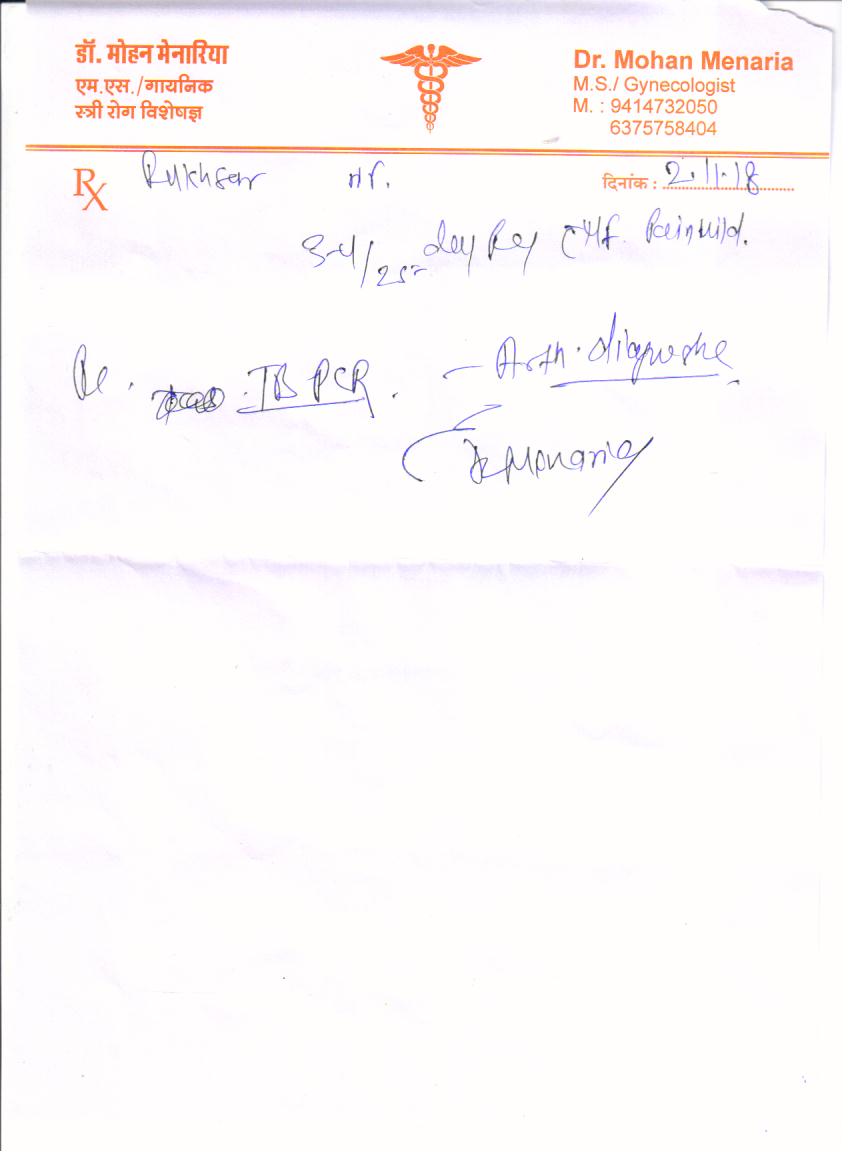 डॉ. मोहन मेनारिया
एम.एस./गायनिक
स्त्री रोग विशेषज्ञ
Dr. Mohan Menaria
M.S./ Gynecologist
M. : 9414732050
6375758404
Rx Rukhsar दिनांक : 2.11.18
3-4/25- day Reg Pain Mild.
TB PCR. - Arth. diagnostic
Dr Menaria